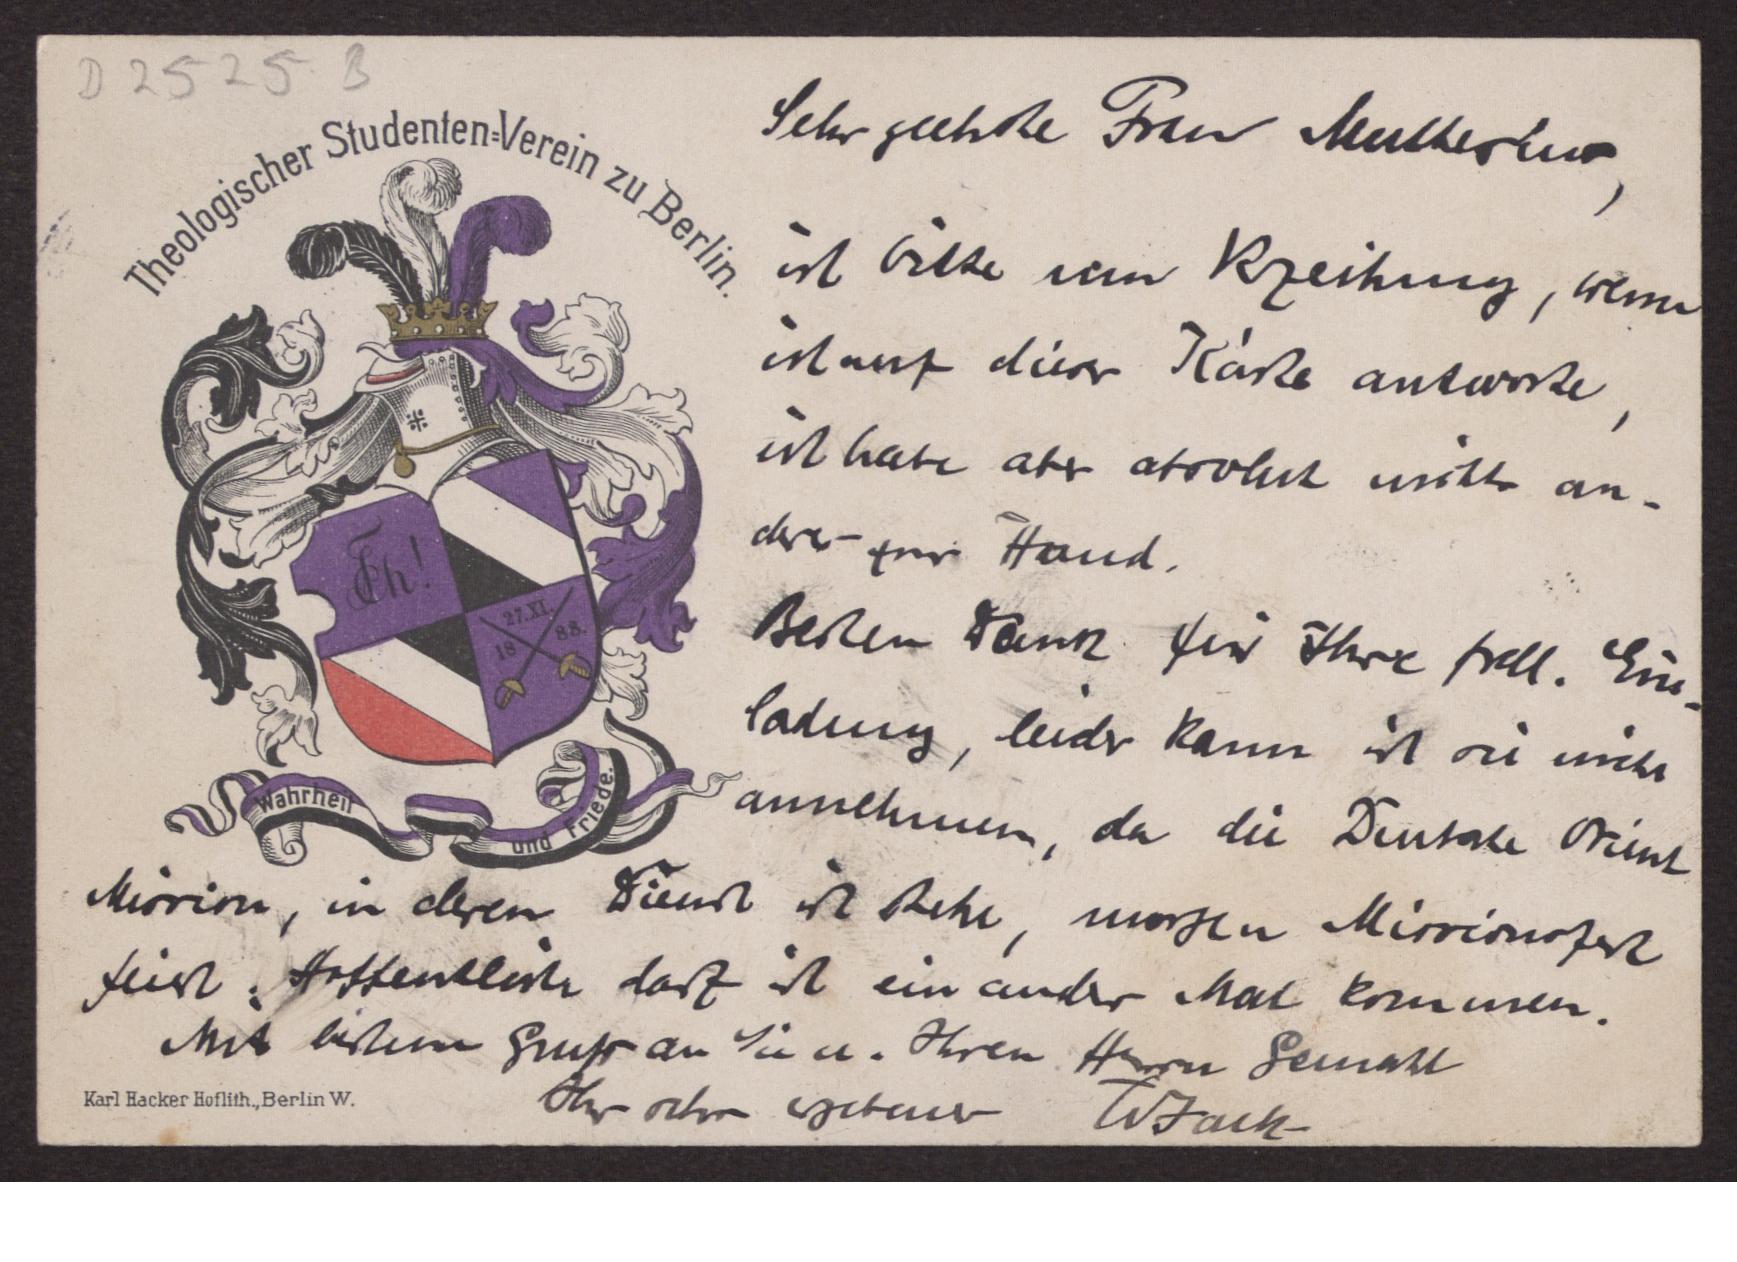 D 2525 B
Theologischer Studenten=Verein zu Berlin.
Th!
27.XI.
18 88.
Wahrheit
und Friede.
Sehr geehrte Frau
ich bitte um Verzeihung, wenn
ich auf dieser Karte antworte,
ich habe aber absolut nichts an-
deres zur Hand.
Besten Dank für Ihre frdl. Ein-
ladung, leider kann ich sie nicht
annehmen, da die Deutsche Orient
Mission, in deren Dienst ich stehe, morgen Missionsfest
feiert. Hoffentlich darf ich ein ander Mal kommen.
Mit bestem Gruß an Sie u. Ihren Herrn Gemahl
Ihr sehr ergebener
Karl Hacker Hoflith., Berlin W.